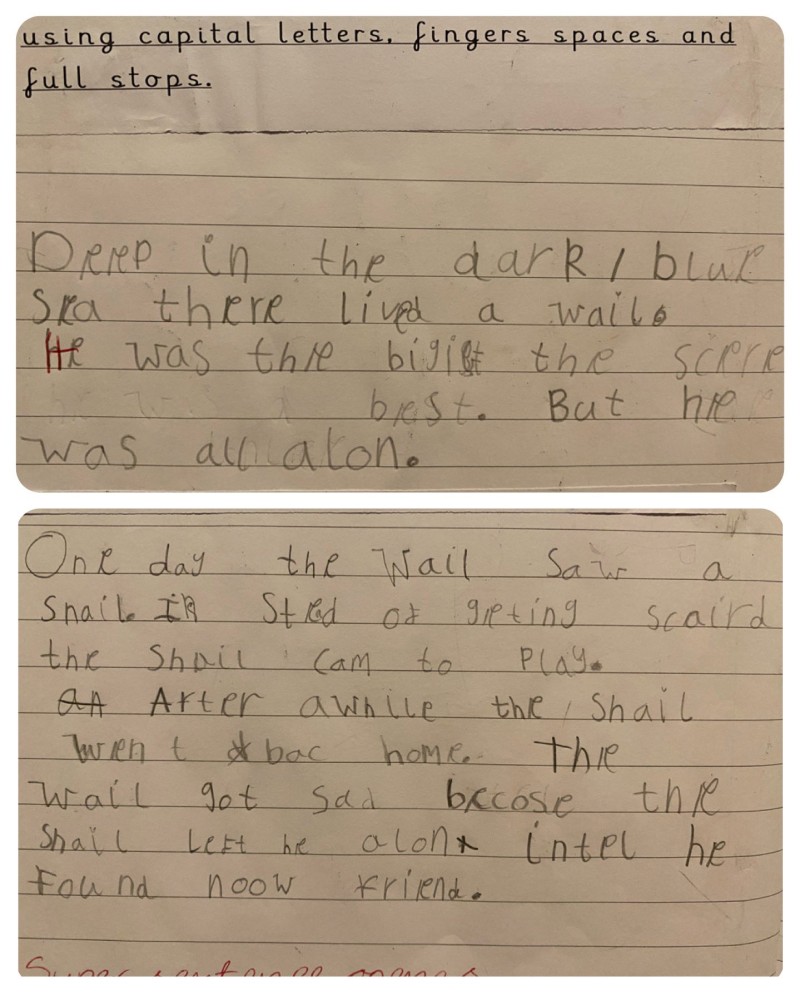 using capital letters, fingers spaces and
full stops.
Deep in the dark / blue
Sea there lived a wail.
He was the bigist the scere
best. But he
was all alon.
One day the Wail Saw a
Snail. In Sted of geting scaird
the Snail cam to Play.
After awhile the Snail
Went bac home. The
Wail got sad becose the
Snail Left he alon intel he
Found noow Friend.